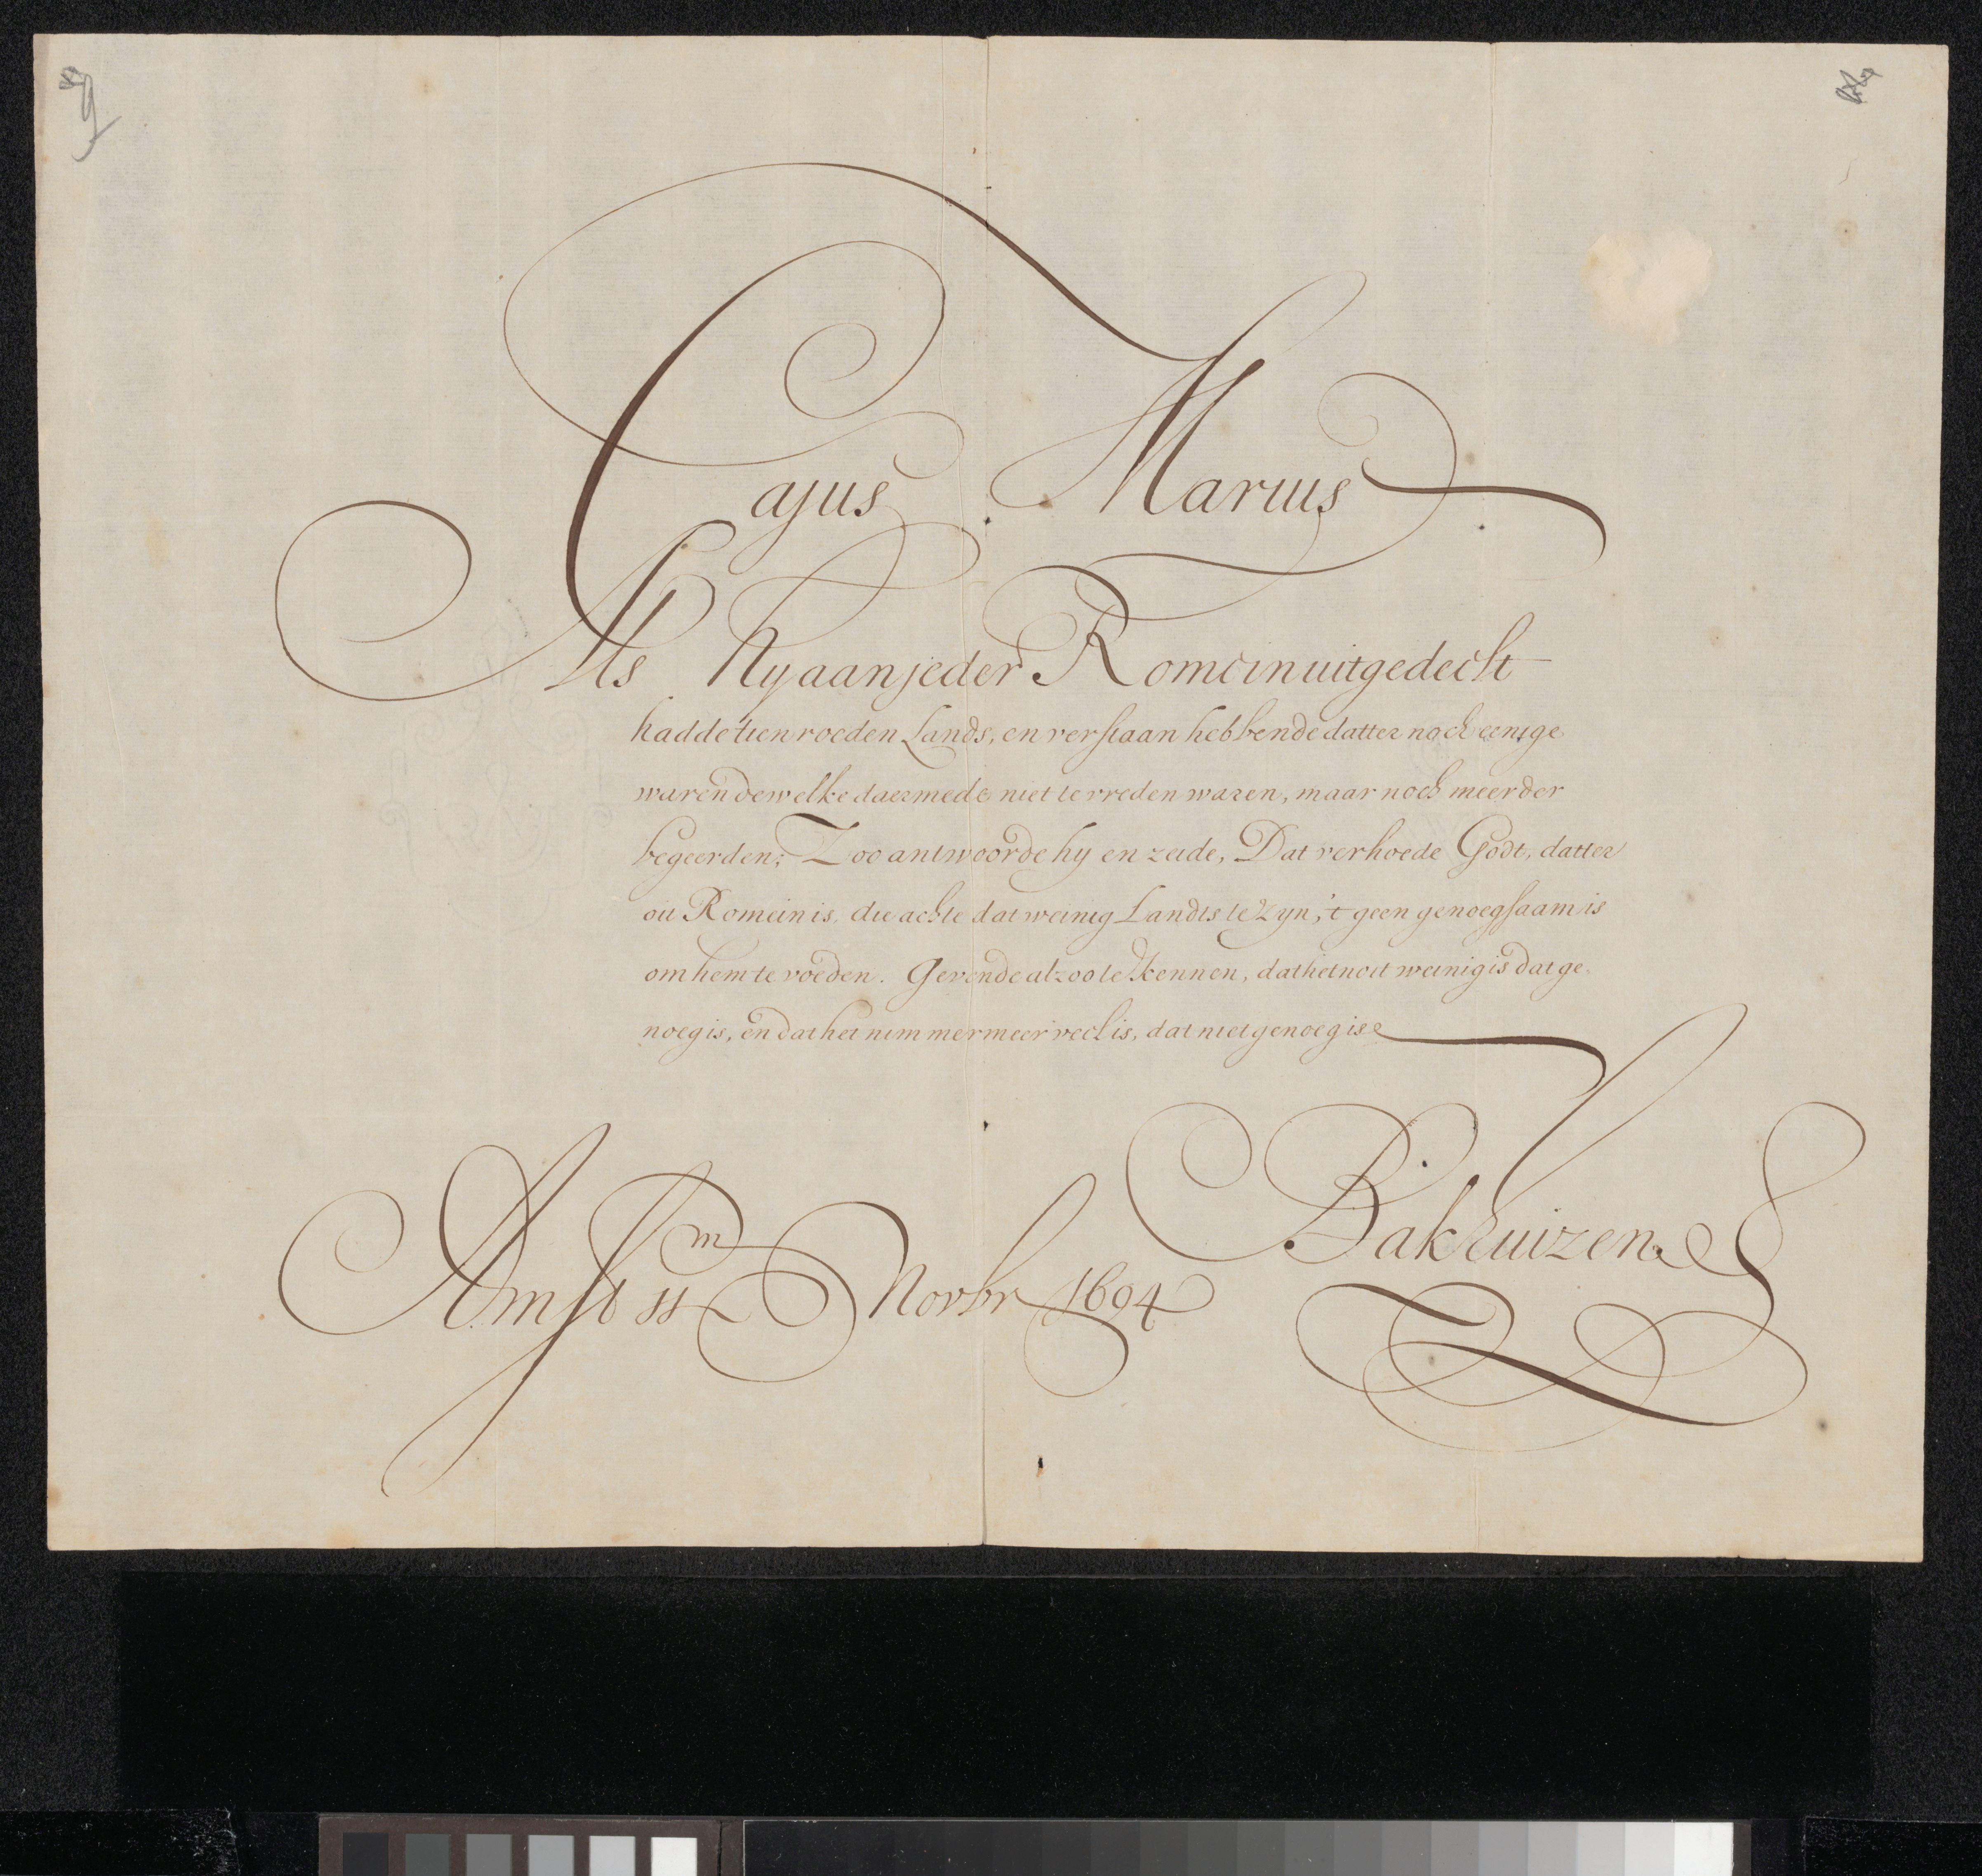 Cajus Marius
Als hy aan jeder Romein uitgedeelt
hadde tien roeden Lands, en verstaan hebbende datter noch eenige
waren dewelke daermede niet te vreden waren, maar noch meerder
begeerden; Zoo antwoorde hy en zeide, Dat verhoede Godt, datter
oit Romein is, die achte dat weinig Landts te zyn, 't geen genoegsaam is
om hem te voeden. Gevende alzoo te kennen, dat het noit weinig is dat ge
noeg is, en dat het nimmermeer veel is, dat niet genoeg is
Bakhuizen
Amstm 11 Novbr 1694